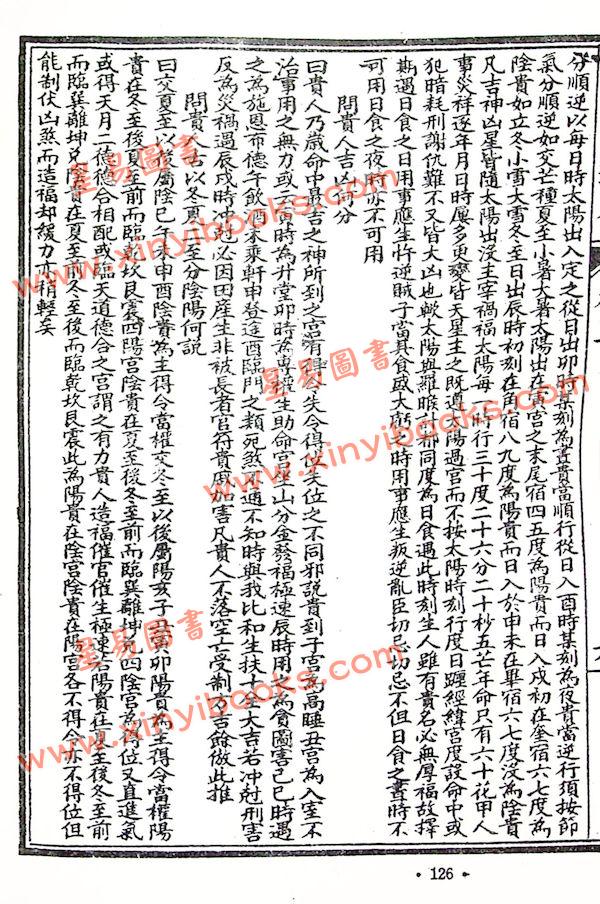 分順逆以每日時太陽出入定之從日出卯時某刻為晝貴當順行從日入酉時某刻為夜貴當逆行須按節
氣分順逆如交芒種夏至小暑大暑太陽出在寅宮之末尾宿四五度為陽貴而日入戌初在奎宿六七度為
陰貴如立冬小雪大雪冬至日出辰時初刻在角宿八九度為陽貴而日入於申未在畢宿六七度沒為陰貴
凡吉神凶星皆隨太陽出沒主宰禍福太陽每一時行三十度二十六分二十秒五芒年命只有六十花甲人
事災祥逐年月日時屢多更變皆天星主之既遁太陽過宮而不按太陽時刻行度日躔經緯宮度設命中或
犯暗耗刑謝仇難不又皆大凶也歟太陽與羅睺計都同度為日食遇此時刻生人雖有貴名必無厚福故擇
期遇日食之日用事應生忤逆賊子當其食盛大虧之時用事應生叛逆亂臣切忌切忌不但日食之晝時不
可用日食之夜時亦不可用
問貴人吉凶何分
曰貴人乃歲命中最吉之神所到之宮有得令失令得位失位之不同邪說貴到子宮為高睡丑宮為入室不
治事用之無力或云寅時為升堂卯時為專權生助命宮坐山分金發福極速辰時用之為貪圖害己巳時遇
之為施恩布德午飲酒未乘軒申登途酉臨門之類宛然可通不知時與我比和生扶十全大吉若冲尅刑害
反為災禍遇辰戌時冲尅必因田產生非被長者官符貴人加害凡貴人不落空亡受制方吉餘倣此推
問貴人古以冬夏二至分陰陽何說
曰交夏至以後屬陰巳午未申酉陰貴為主得令當權交冬至以後屬陽亥子丑寅卯陽貴為主得令當權陽
貴在冬至後夏至前而臨乾坎艮震四陽宮陰貴在夏至後冬至前而臨巽離坤兌四陰宮為得位又直進氣
或得天月二德德合相配或臨天道德合之宮謂之有力貴人造福催官催生極速若陽貴在夏至後冬至前
而臨巽離坤兌陰貴在夏至前冬至後而臨乾坎艮震此為陽貴在陰宮陰貴在陽宮各不得令亦不得位但
能制伏凶煞而造福却緩力亦稍輕矣
·126·
星易圖書
www.xinyibooks.com
星易圖書
www.xinyibooks.com
星易圖書
www.xinyibooks.com
星易圖書
www.xinyibooks.com